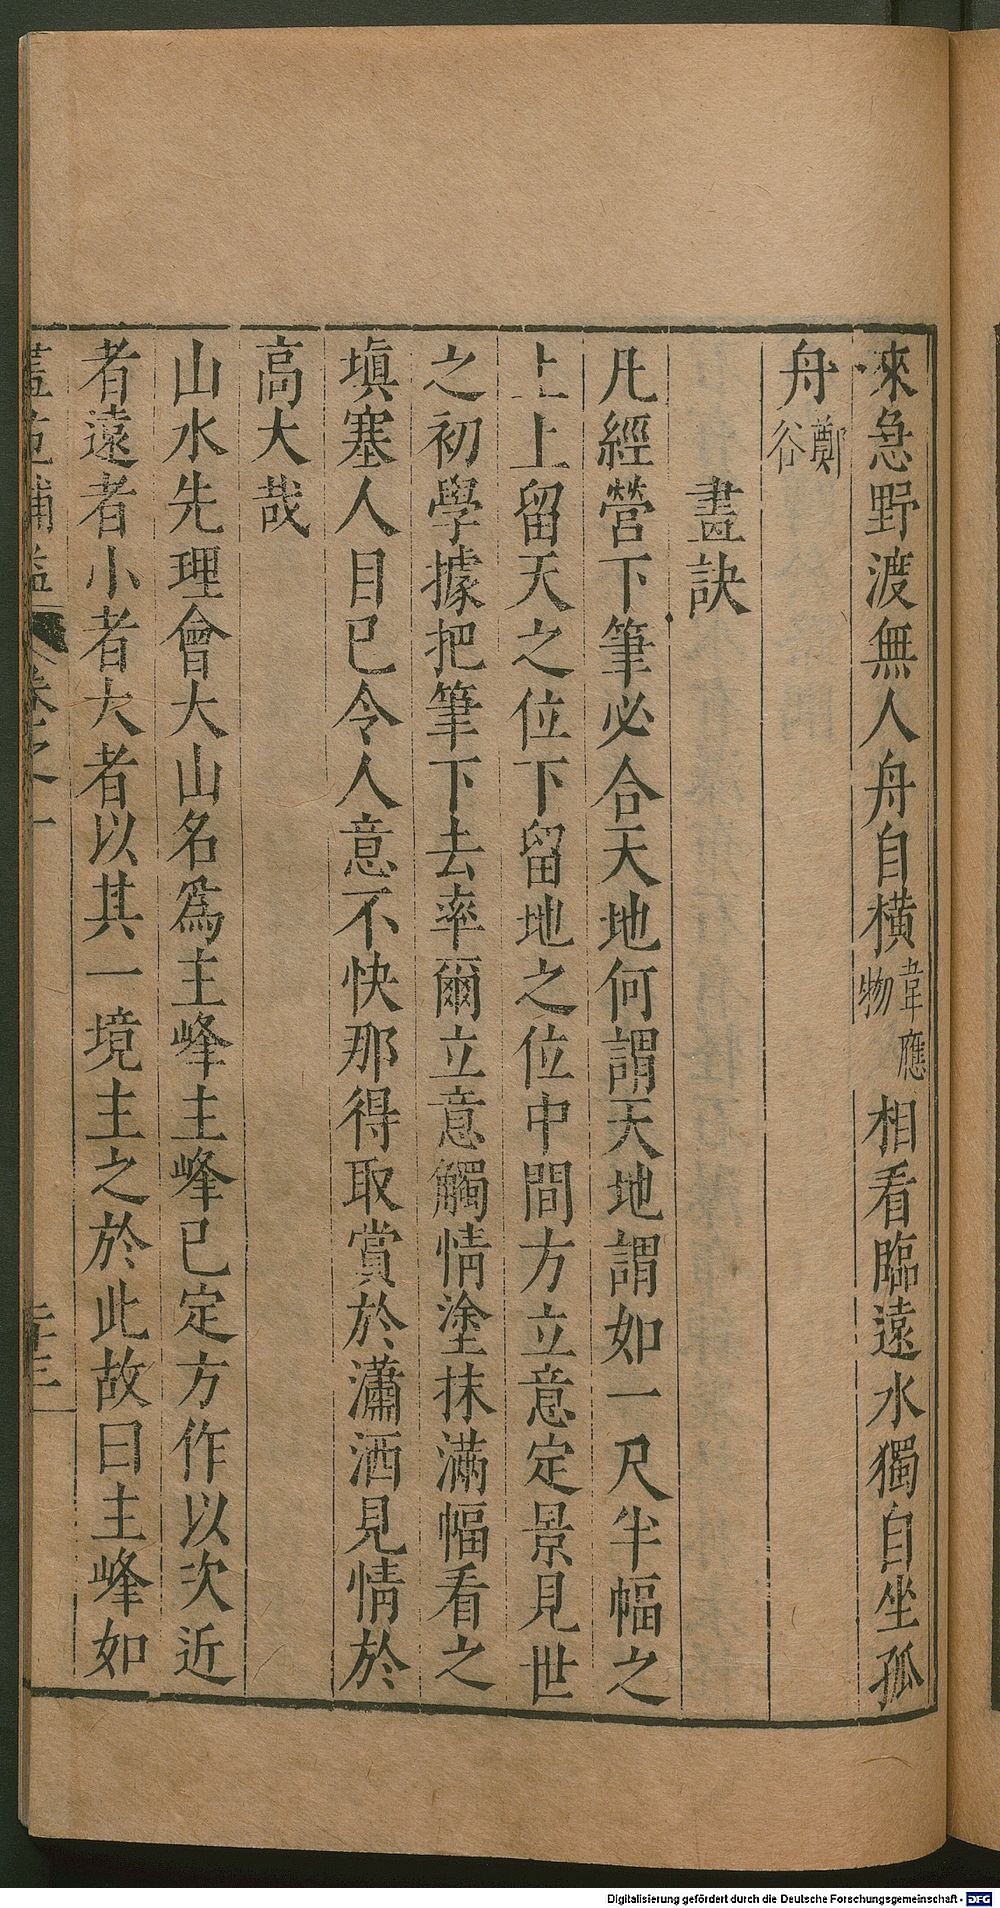 來急野渡無人舟自橫韋應物相看臨遠水獨自坐孤
舟鄭谷
畫訣
凡經營下筆必合天地何謂天地謂如一尺半幅之
上上留天之位下留地之位中間方立意定景見世
之初學據把筆下去率爾立意觸情塗抹滿幅看之
塡塞人目已令人意不快那得取賞於瀟洒見情於
高大哉
山水先理會大山名爲主峰主峰已定方作以次近
者遠者小者大者以其一境主之於此故曰主峰如
卷之一
Digitalisierung gefördert durch die Deutsche Forschungsgemeinschaft - DFG